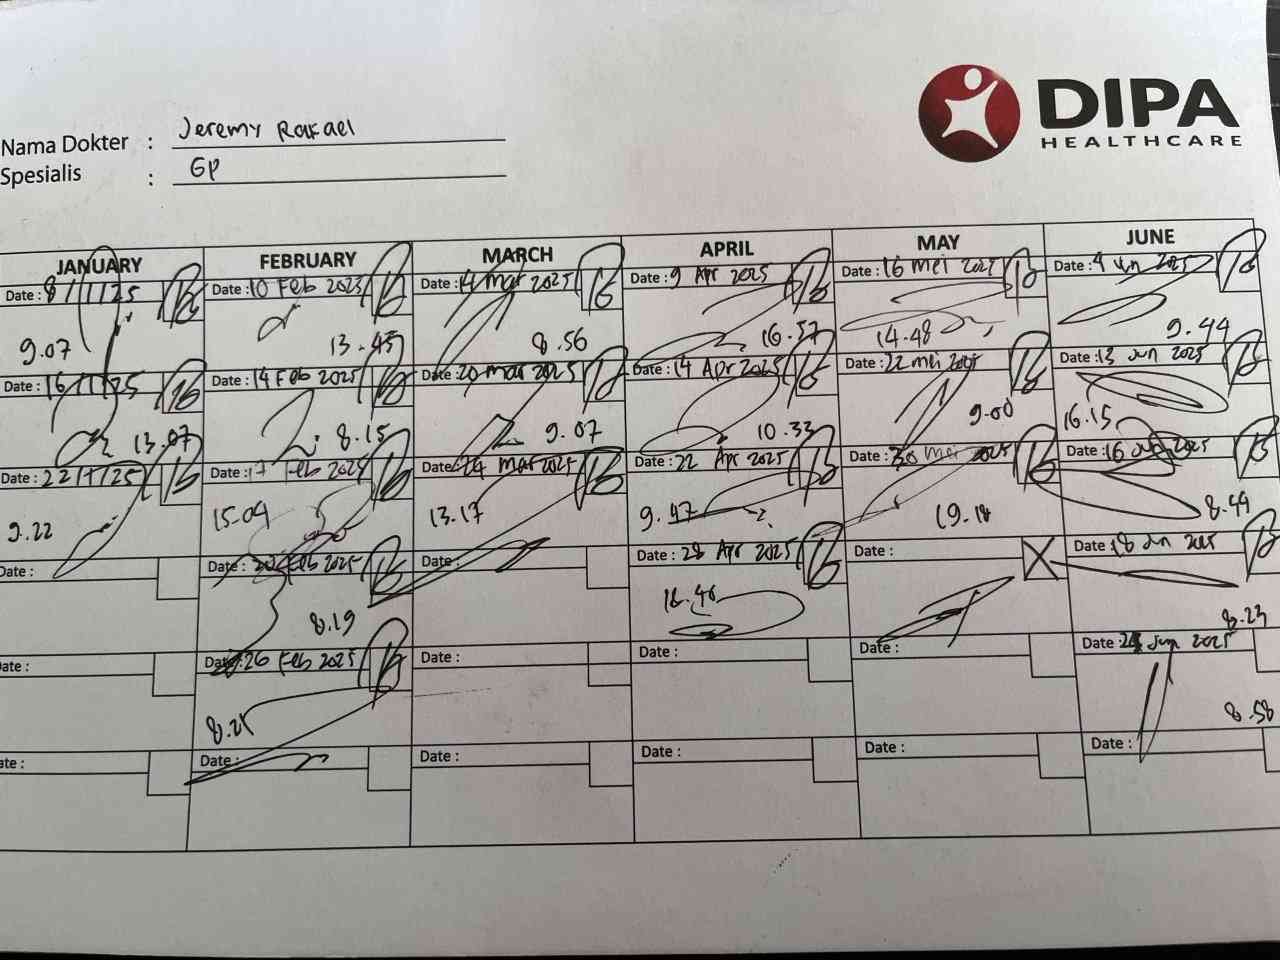 DIPA
HEALTHCARE
Nama Dokter : Jeremy Rafael
Spesialis : GP
JANUARY FEBRUARY MARCH APRIL MAY JUNE
Date : 8/1/25 Date : 10 Feb 2025 Date : 14 Mar 2025 Date : 9 Apr 2025 Date : 16 Mei 2025 Date : 4 Jun 2025
9.07 13.45 8.56 16.57 14.48 9.44
Date : 16/1/25 Date : 14 Feb 2025 Date : 20 mar 2025 Date : 14 Apr 2025 Date : 22 mei 2025 Date : 13 Jun 2025
13.07 8.15 9.07 10.33 9.00 16.15
Date : 22/1/25 Date : 17 Feb 2025 Date : 24 Mar 2025 Date : 22 Apr 2025 Date : 30 Mei 2025 Date : 16 Jun 2025
9.22 15.09 13.17 9.47 19.18 8.49
Date : Date : Feb 2025 Date : Date : 28 Apr 2025 Date : Date : 18 Jun 2025
8.19 16.46 8.23
ate : Date : 26 Feb 2025 Date : Date : Date : Date : Jun 2025
8.21 8.58
ate : Date : Date : Date : Date : Date :